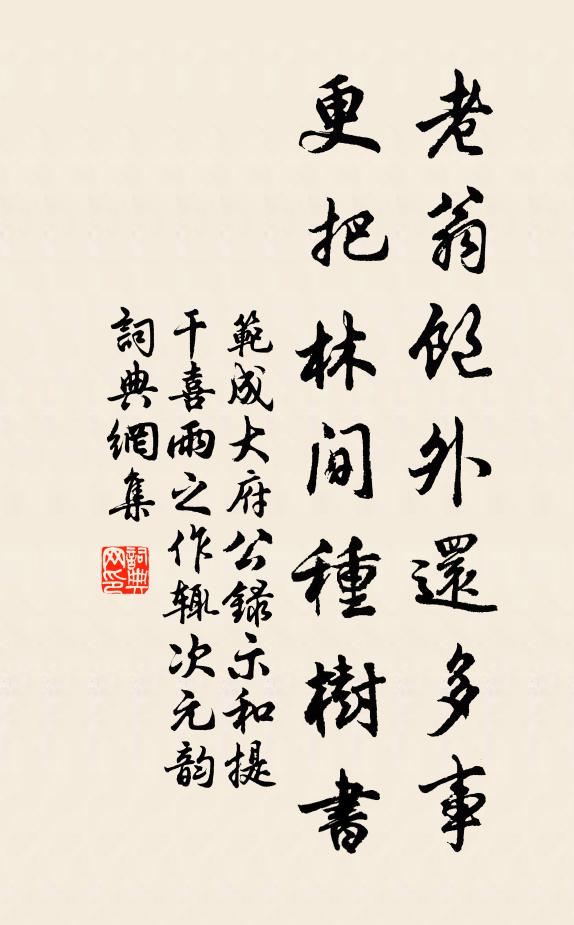 老翁飽外還多事
更把林間種樹書
範成大府公録示和提
干喜雨之作輒次元韵
詞典網集
詞典网印